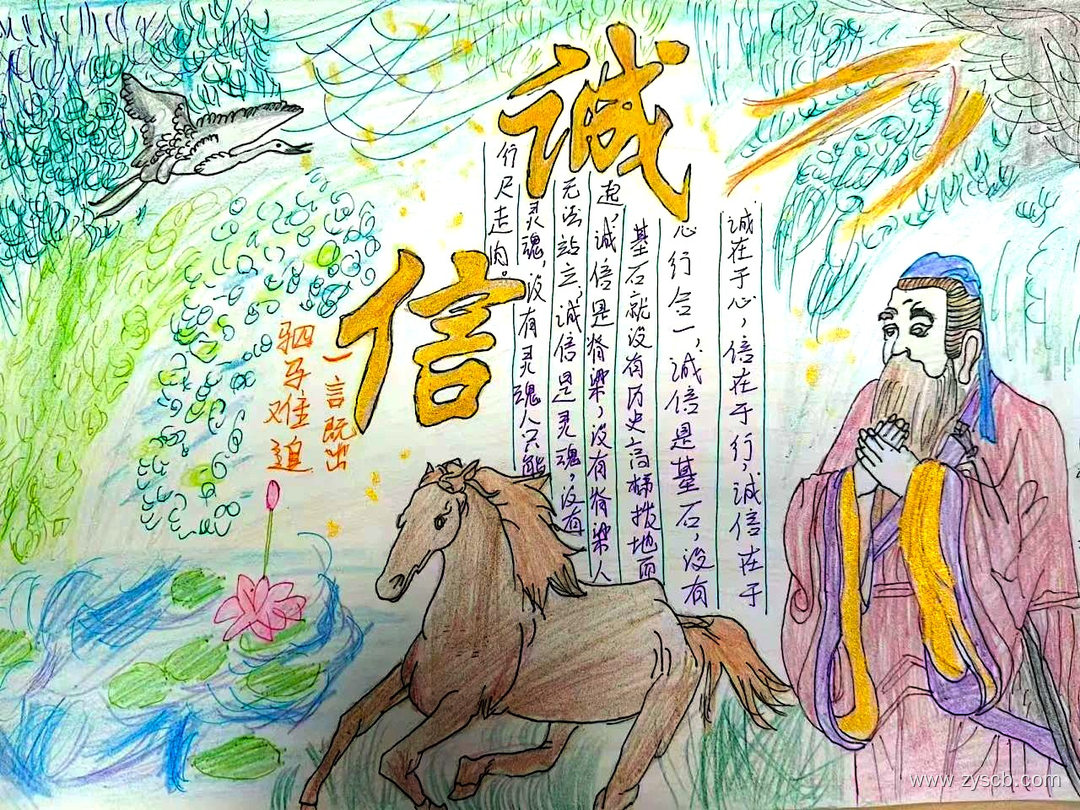 诚
信
诚在于心，信在于行，诚信在于
心行合一，诚信是基石，没有
基石就没有历史高楼拔地而
起，诚信是脊梁，没有脊梁人
无法站立，诚信是灵魂，没有
灵魂，没有灵魂人只能
行尺走肉。
一言既出
驷马难追
www.zyscb.com